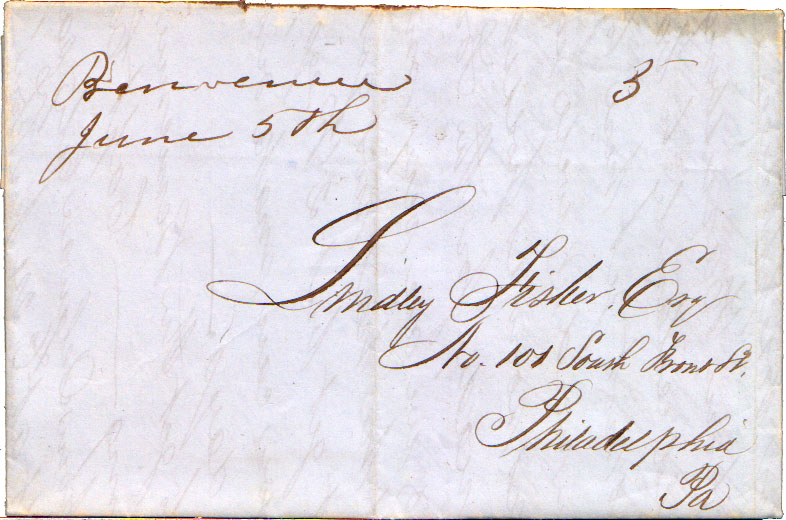 Benvenue 5
June 5th
Lindley Fisher, Esq
No. 101 South Front St.
Philadelphia
Pa